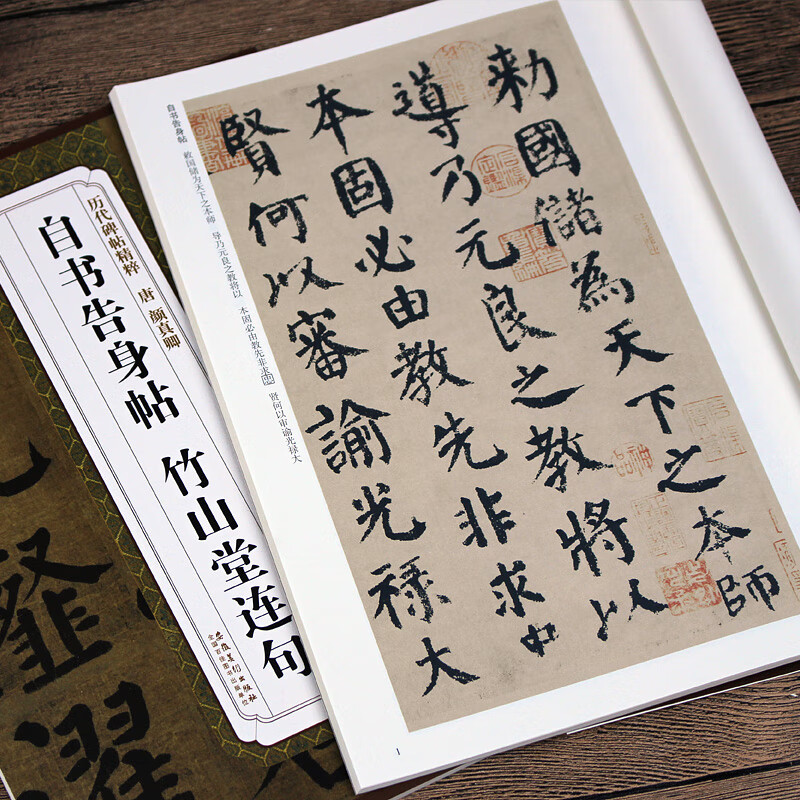 勑國儲為天下之本師
導乃元良之教將以
本固必由教先非求中
賢何以審諭光禄大
自书告身帖 敕国储为天下之本师 导乃元良之教将以 本固必由教先非求 贤何以审谕光禄大
1
历代碑帖精粹 唐 颜真卿
自书告身帖 竹山堂连句
安徽美术出版社
全国百佳图书出版单位